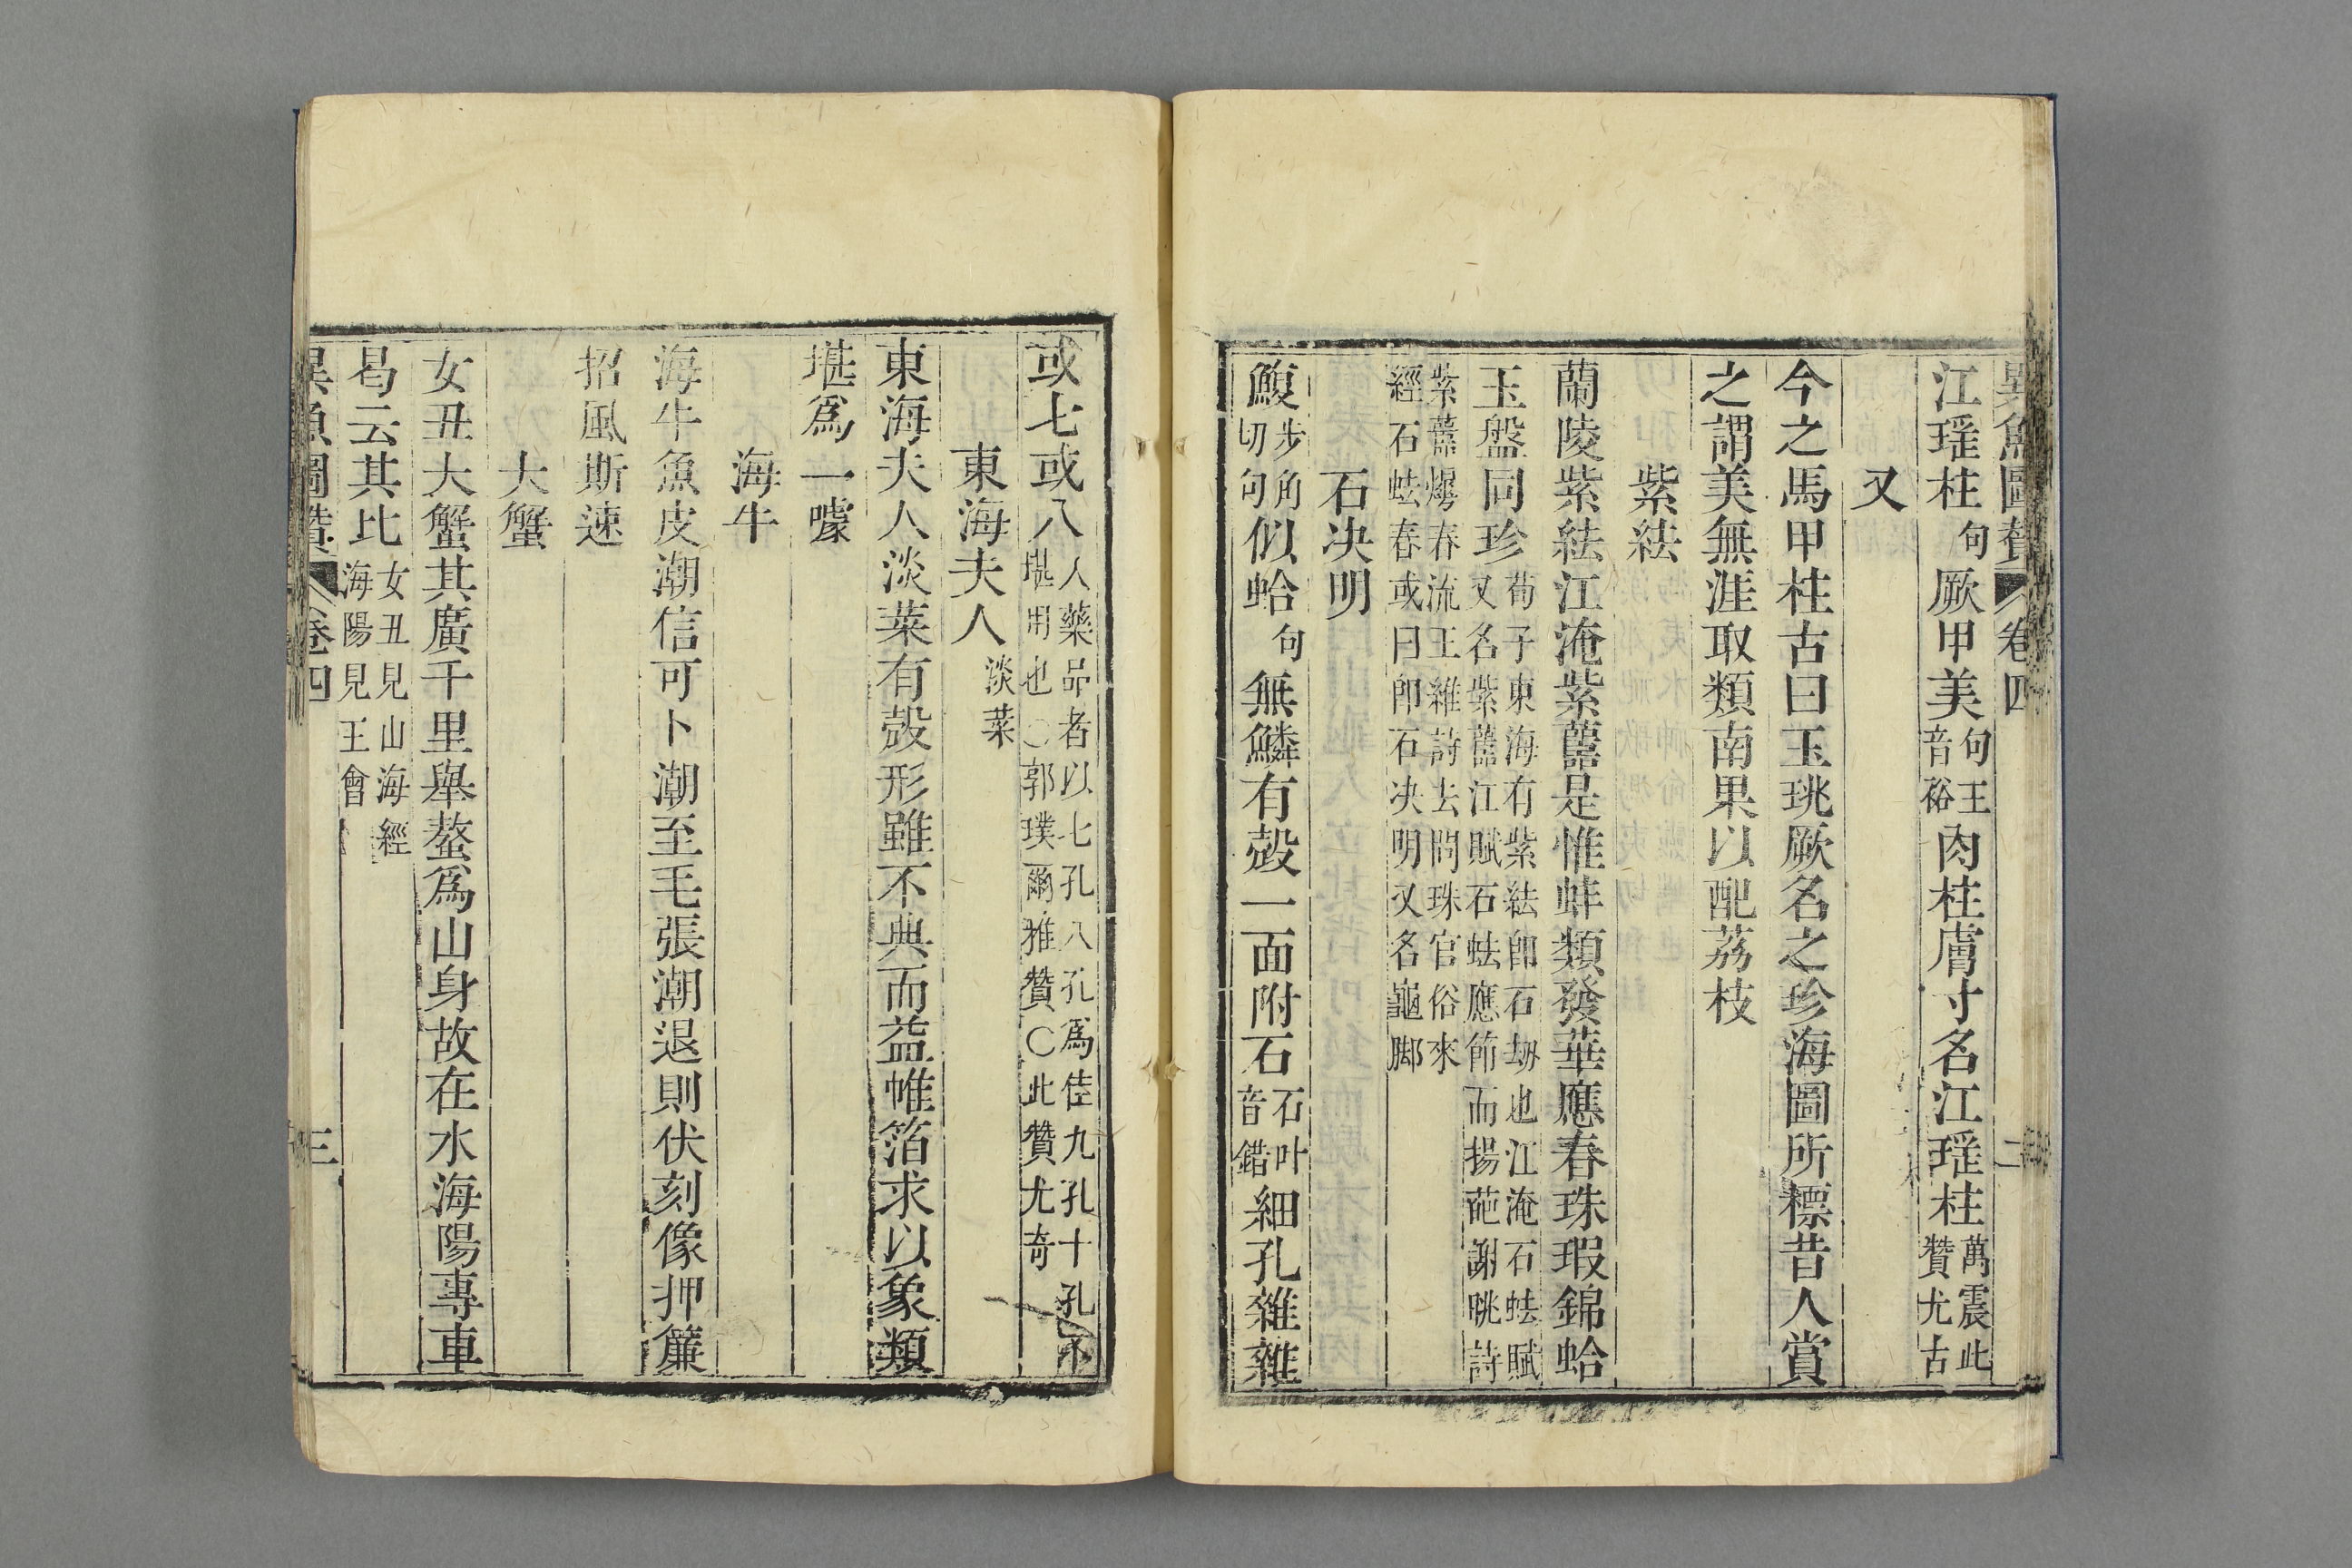 異魚圖贊 卷四 二
江瑤柱句厥甲美句王音裕肉柱膚寸名江瑤柱萬震此贊尤古
又
今之馬甲柱古曰玉珧厥名之珍海圖所標昔人賞
之謂美無涯取類南果以配荔枝
紫𧉧
蘭陵紫𧉧江淹紫蘁是惟蚌類發華應春珠瑕錦蛤
玉盤同珍荀子東海有紫𧉧卽石劫也江淹石𧉧賦又名紫蘁江賦石𧉧應節而揚葩謝朓詩
紫蘁爆春流王維詩去問珠官俗來經石𧉧春或曰卽石决明又名龜脚
石决明
鰒步角切句似蛤句無鱗有殼一面附石石叶音錯細孔雜雜
或七或八人藥品者以七孔八孔爲佳九孔十孔不堪用也〇郭璞爾雅贊〇此贊尤奇
東海夫人淡菜
東海夫人淡菜有殼形雖不典而益帷箔求以象類
堪爲一噱
海牛
海牛魚皮潮信可卜潮至毛張潮退則伏刻像押簾
招風斯速
大蟹
女丑大蟹其廣千里舉螯爲山身故在水海陽專車
曷云其比女丑見山海經海陽見王會
異魚圖贊 卷四 三